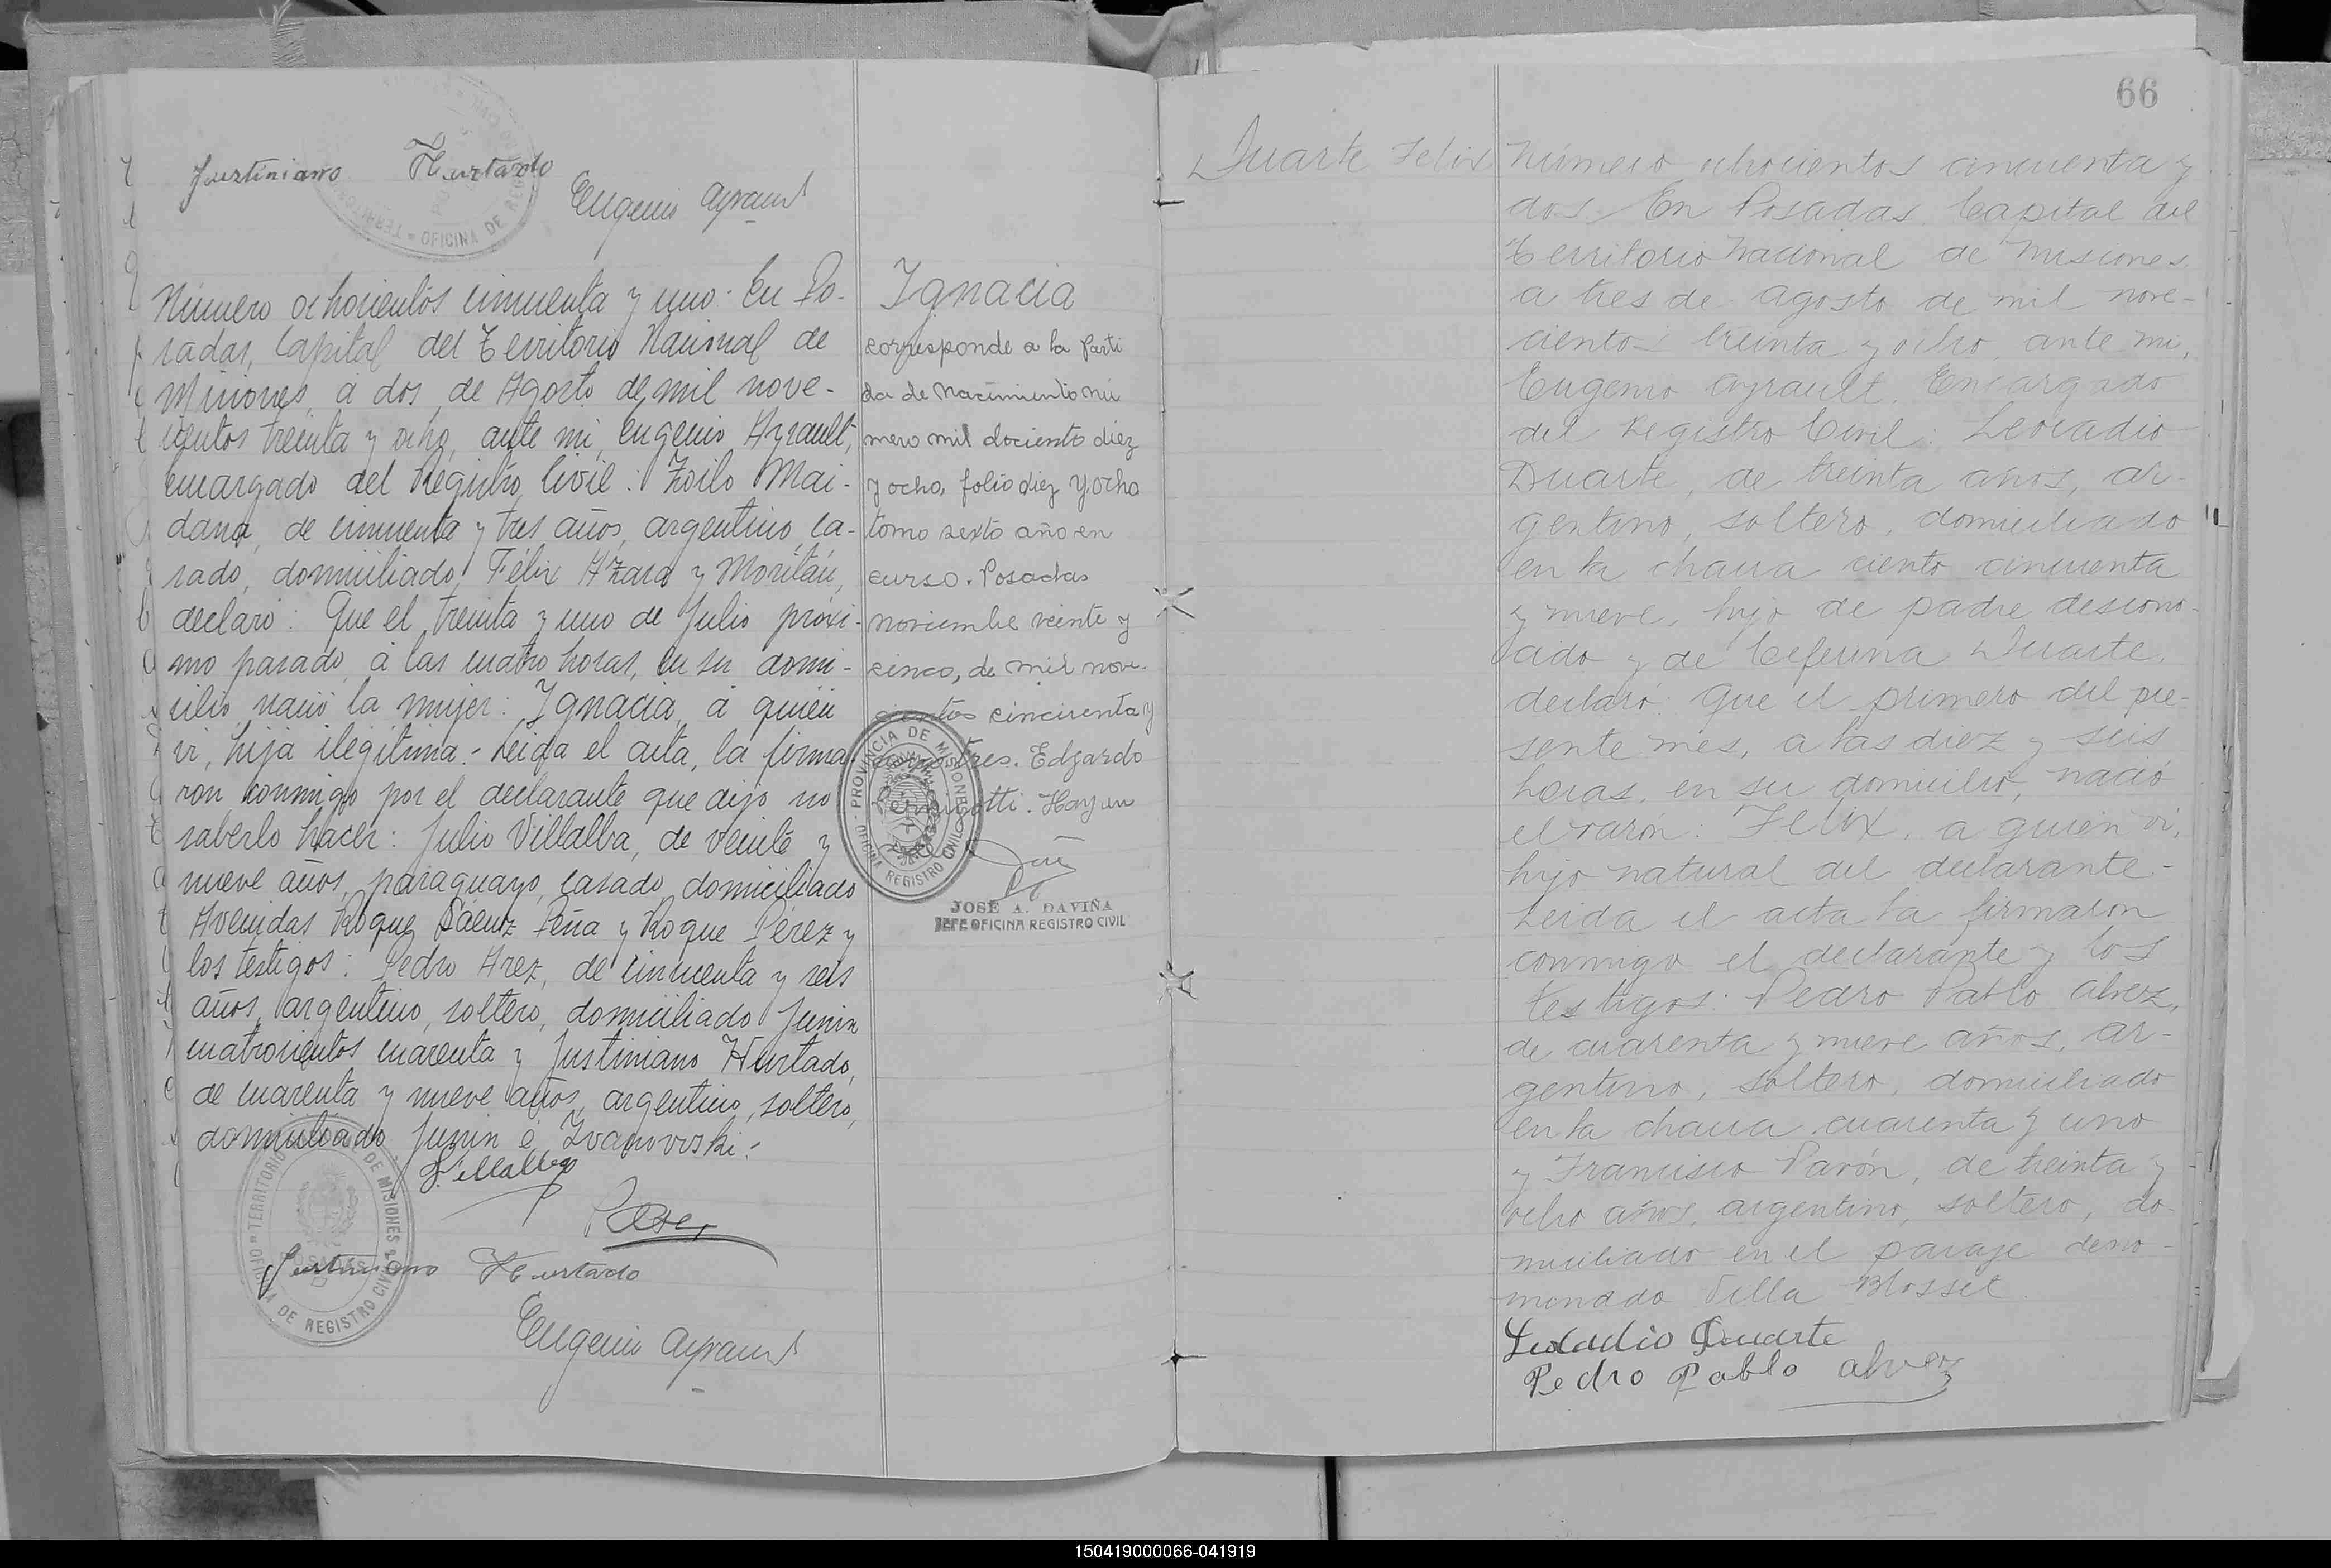 Justiniano Hurtado
Eugenio Ayrault
Número ochocientos cincuenta y uno. En Po-
sadas, Capital del Territorio Nacional de
Misiones, á dos de Agosto de mil nove-
cientos treinta y ocho, ante mi, Eugenio Ayrault,
encargado del Registro Civil: Zoilo Mai-
dana, de cincuenta y tres años, argentino, ca-
sado, domiciliado Félix Azara y Moritán,
declaró: Que el treinta y uno de Julio próxi-
mo pasado, á las cuatro horas, en su domi-
cilio nació la mujer: Ignacia, á quién
vi, hija ilegítima.- Leida el acta, la firma-
ron conmigo por el declarante que dijo no
saberlo hacer: Julio Villalba, de veinte y
nueve años, paraguayo, casado, domiciliado
Avenidas Roque Sáenz Peña y Roque Pérez y
los testigos: Pedro Arez, de cincuenta y seis
años, argentino, soltero, domiciliado Junin
cuatrocientos cuarenta y Justiniano Hurtado,
de cuarenta y nueve años, argentino, soltero,
domiciliado Junin é Ivanovski.-
J. Villalba
Justiniano Hurtado
Eugenio Ayrault
TERRITORIO DE MISIONES
OFICINA DE REGISTRO CIVIL
Ignacia
corresponde a la Parti
da de Nacimiento nú
mero mil dociento diez
y ocho, folio diez y ocho
tomo sexto año en
curso. Posadas
noviembre veinte y
cinco, de mil nove-
cientos cincuenta y
tres. Edgardo
Hay un
PROVINCIA DE MISIONES
OFICINA REGISTRO CIVIL
JOSÉ A. DAVIÑA
JEFE OFICINA REGISTRO CIVIL
66
Duarte Felix
Número ochocientos cincuenta y
dos. En Posadas, Capital del
Territorio Nacional de Misiones
a tres de agosto de mil nove-
cientos treinta y ocho, ante mi,
Eugenio Ayrault, Encargado
del Registro Civil: Leocadio
Duarte, de treinta años, ar-
gentino, soltero, domiciliado
en la chacra ciento cincuenta
y nueve, hijo de padre descono-
cido y de Ceferina Duarte,
declaró: Que el primero del pre-
sente mes, a las diez y seis
horas, en su domicilio, nació
el varón: Felix, a quien vi,
hijo natural del declarante.-
Leida el acta la firmaron
conmigo el declarante y los
testigos: Pedro Pablo Alvez,
de cuarenta y nueve años, ar-
gentino, soltero, domiciliado
en la chacra cuarenta y uno
y Francisco Pavón, de treinta y
ocho años, argentino, soltero, do-
miciliado en el paraje deno-
minado Villa Blosset
Leocadio Duarte
Pedro Pablo Alvez
150419000066-041919